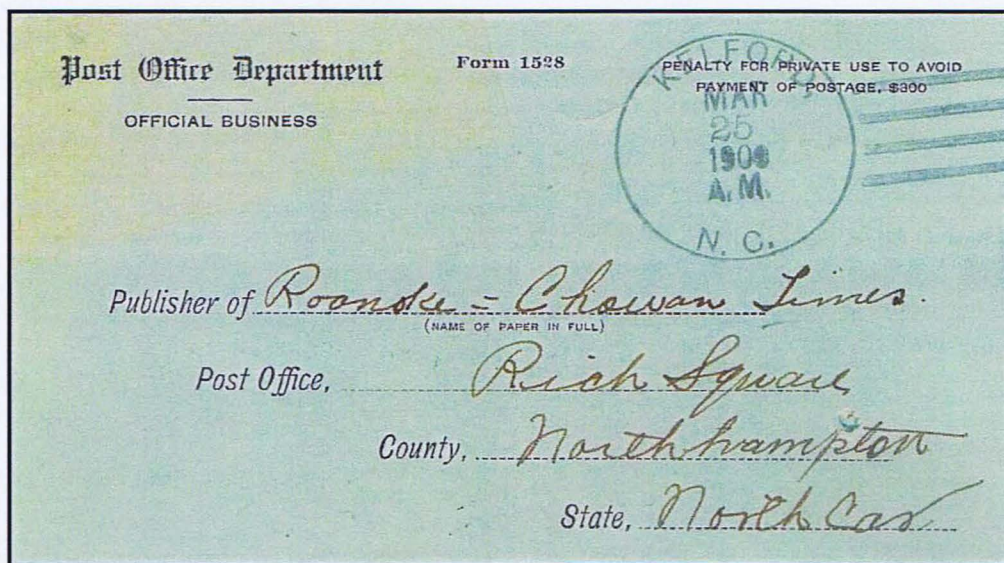 Post Office Department
OFFICIAL BUSINESS
Form 1528
PENALTY FOR PRIVATE USE TO AVOID
PAYMENT OF POSTAGE, $300
KELFORD,
MAR
25
A.M.
N. C.
Publisher of Roanoke = Chowan Times.
(NAME OF PAPER IN FULL)
Post Office, Rich Square
County, Northhampton
State, North Car